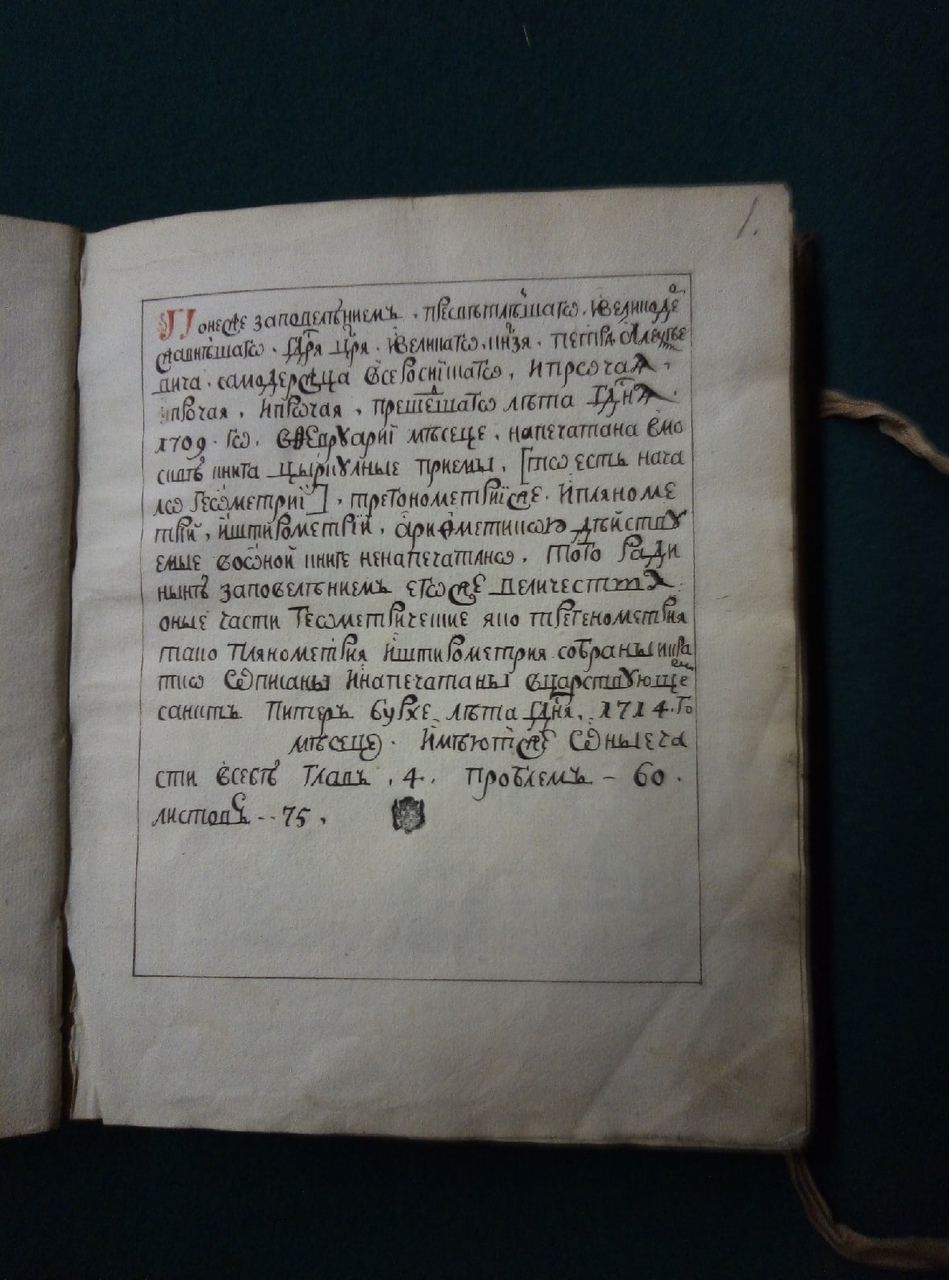 1.
Понеже заповелѣниемъ . пресвѣтлѣшагѡ . ивеликоде
ржавнѣшагѡ . гдря цря . ивеликагѡ . кнзя . петра алеѯѣе
вича . самодержца всеросиїшагѡ , ипрочая ,
ипрочая , ипрочая , прешешагѡ лѣта гдня
1709 . гѡ . вѳевруариї мѣсеце , напечатана вмо
сквѣ книга цыркулные приемы , [тѡ есть нача
лѡ геѡметриї] , третонометриїже . ипляноме
трїи , иштирометрїи , ариѳметикою дѣиству
емые воѡной книге ненапечатанѡ , того ради
нынѣ заповелѣниемъ егѡже величества
оные части геѡметрические яко третенометрия
тако плянометрия иштирометрия собраны икра
ткѡ ѡписаны инапечатаны вцарствующе
санктъ питеръ бурхе лѣта гдня , 1714 . го
мѣсеце . имѣютже ѡныеча
сти всебѣ главъ . 4 . проблемъ – 60 .
листовъ - - 75 .